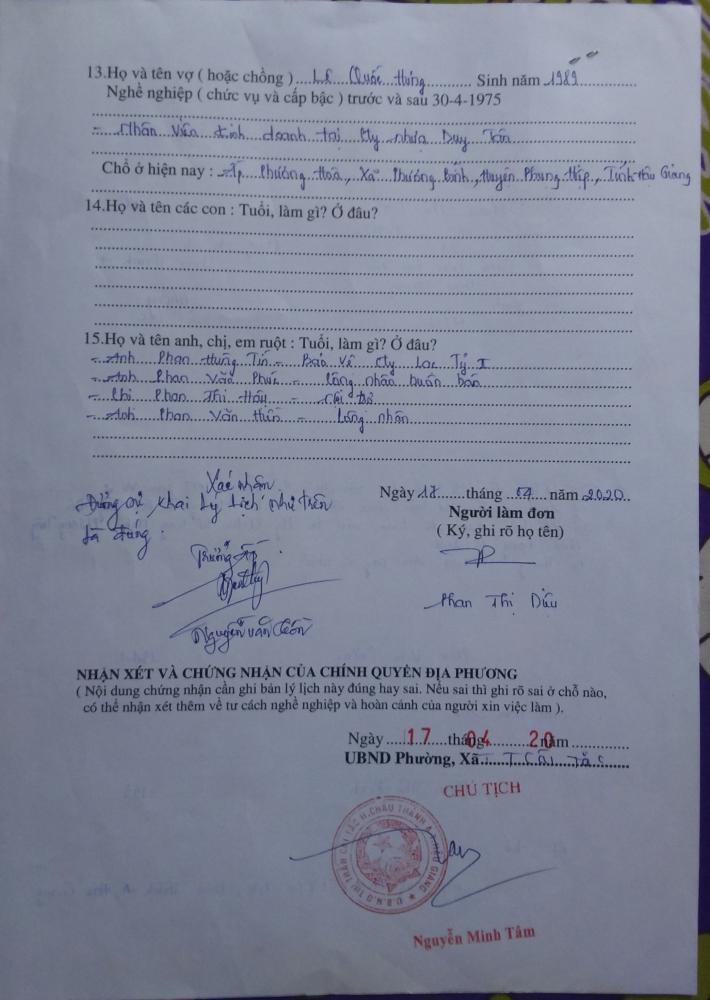 13.Họ và tên vợ ( hoặc chồng ) .... Lê Quốc Hưng ........... Sinh năm 1989
Nghề nghiệp ( chức vụ và cấp bậc ) trước và sau 30-4-1975
- Nhân viên kinh doanh tại Cty nhựa Duy Tân
Chỗ ở hiện nay : Ấp Phương Hoà, Xã Phương Bình, Huyện Phụng Hiệp, Tỉnh Hậu Giang
14.Họ và tên các con : Tuổi, làm gì? Ở đâu?
15.Họ và tên anh, chị, em ruột : Tuổi, làm gì? Ở đâu?
- Anh Phan Hưng Tín - Bảo vệ Cty Lạc Tỷ I
- Anh Phan Văn Phúc - buôn bán
- Chị Phan Thị - Nội trợ
- Anh Phan Văn - Công nhân
Xác nhận
Đương sự khai lý lịch như trên
là đúng.
Trưởng ấp
Nguyễn Văn
Ngày 17 ....... tháng .. 04 .... năm 2020
Người làm đơn
( Ký, ghi rõ họ tên)
Phan Thị Diệu
NHẬN XÉT VÀ CHỨNG NHẬN CỦA CHÍNH QUYỀN ĐỊA PHƯƠNG
( Nội dung chứng nhận cần ghi bản lý lịch này đúng hay sai. Nếu sai thì ghi rõ sai ở chỗ nào,
có thể nhận xét thêm về tư cách nghề nghiệp và hoàn cảnh của người xin việc làm ).
Ngày ..... 17 .... tháng 04 ........ 20 năm ..............
UBND Phường, Xã ... TT Cái Tắc
CHỦ TỊCH
U.B.N.D THỊ TRẤN CÁI TẮC H.CHÂU THÀNH A T.HẬU GIANG
Nguyễn Minh Tâm